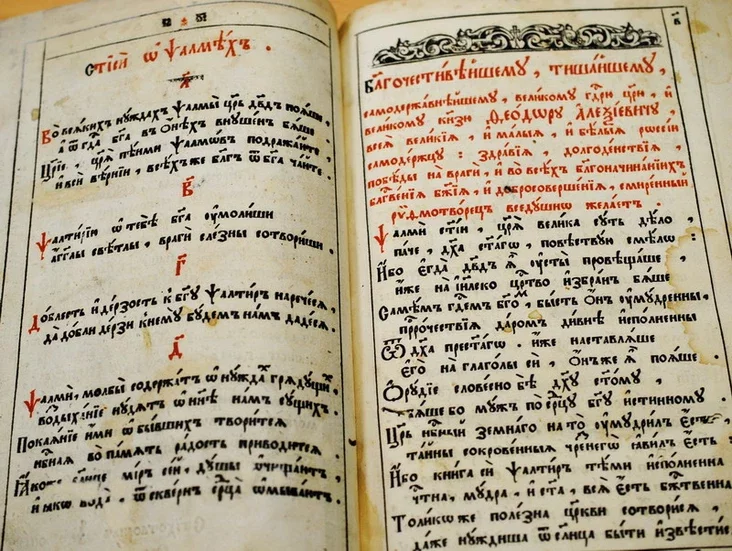 Стїсѝ ѿ Ѱалмѣхъ.
а҃
Во всѧкихъ нуждахъ Ѱалмы цр҃ь дв҃дъ поѧше,
а ѿ гда бг҃а въ ѻнѣхъ внушен бѧше
Цр҃їе, цр҃ѧ пѣнми Ѱаломъ подражайте,
и вси вѣрнїи, всѣхъ же благъ ѿ бг҃а чайте.
в҃
Ѱалтирїю ѿ тебѣ бг҃а оумолиши
агг҃лы свѣтлы, враги слезны сотвориши.
г҃
Доблесть и дерзость к бг҃у Ѱалтирь наречесѧ,
да добли дерзи к нему будемъ намъ дадесѧ.
д҃
Ѱалми, молбы содержатъ ѿ нужда грѧдущи.
воздыханїе нудѧтъ ѿ нн҃ѣ намъ сущихъ.
Покаѧнїе ими ѿ бывшихъ творитсѧ
нб҃наѧ во памѧть радость приводитсѧ
мїръ сей, душы ѡчищаютъ,
и ѩкѡ вода, ѿ сквернъ ср҃ца ѡмываютъ.
Бл҃гочестивѣйшему, тишайшему,
самодержавнѣйшему, великому гд҃рю цр҃ю, и
великому кн҃зю Ѳеодѡру Алеѯїевичу,
всеѧ великїѧ, и малыѧ, и бѣлыѧ рѡссїи
самодержцу: здравїѧ, долгоденствїѧ,
побѣды на враги, и во всѣхъ благоначинанїихъ
бл҃гвенїѧ бж҃їѧ, и добросовершенїѧ, смиренный
рүѳмотворецъ вседушнѡ желаетъ.
Ѱалми ст҃їи, цр҃ѧ велика суть дѣло,
паче, дх҃а ст҃агѡ, повѣствую смѣлѡ:
Ибо егда дв҃дъ ѧ усты провѣщаше,
иже на ін҃леско цр҃тво избранъ бѧше
Самѣмъ гд҃емъ бг҃ом, бысть ѻнъ оумудренны,
прⷪ҇рочествїѧ даромъ дивнѣ исполненны
Ѿ дх҃а прест҃агѡ. иже наставлѧше
єгѡ на глаголы сей, ѻнъ же ѧ поѧше.
Ѻрудїе словесно бѣ дх҃у ст҃ому,
бѧше бо мужъ по ср҃цу бг҃у истинному.
Цр҃ь нб҃ный земнаго на то оумудрилъ єсть,
тайны сокровенныѧ чрез негѡ ѩвилъ єсть:
Ибо книга сїѧ Ѱалтирь тѣми исполненна
чт҃на, мудра, и ст҃а, всѧ єсть бж҃твенна
Толикѡ же полезна цр҃кви сотворисѧ,
даже нуждиша ѿ сл҃нца быти